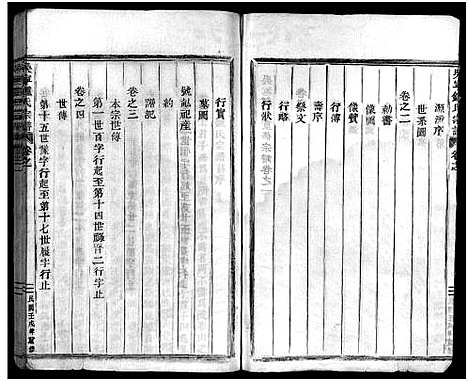 源流序
世系圖
卷之二
勅書
像圖
像贊
行傳
壽序
祭文
行狀
行實
墓圖
號紀祀產
約
譜記
卷之三
本宗世傳
第一世
行起至第十四世
行止
卷之四
世傳
第十五世
字行起至第十七世
字行止
氏宗譜
卷之
民國壬戌年